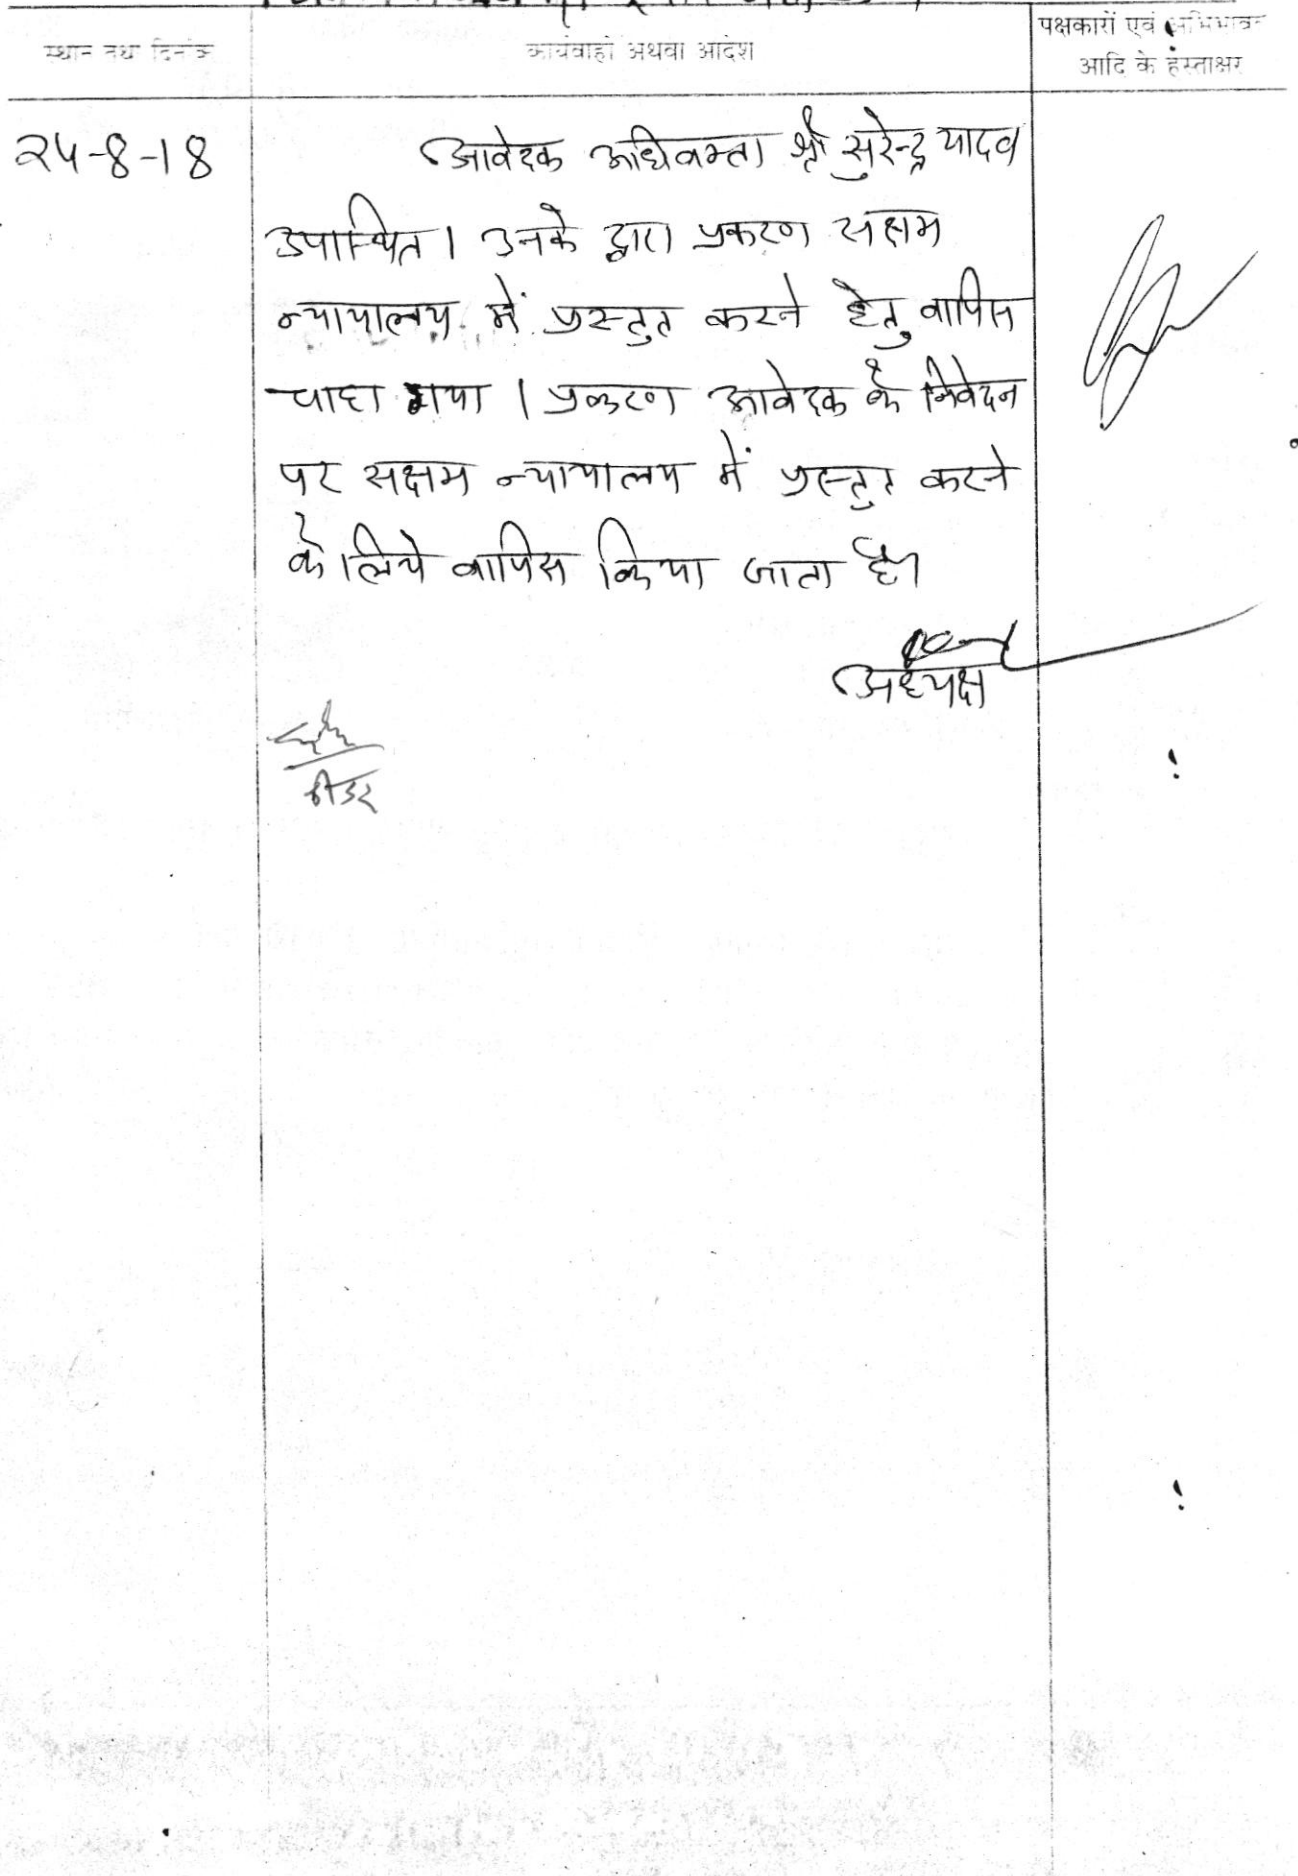 स्थान तथा दिनांक
कार्यवाही अथवा आदेश
पक्षकारों एवं अभिभावक
आदि के हस्ताक्षर
२५-8-18
आवेदक अधिवक्ता श्री सुरेन्द्र यादव
उपस्थित। उनके द्वारा प्रकरण सक्षम
न्यायालय में प्रस्तुत करने हेतु वापिस
चाहा गया। प्रकरण आवेदक के निवेदन
पर सक्षम न्यायालय में प्रस्तुत करने
के लिये वापिस किया जाता है।
अध्यक्ष
रीडर